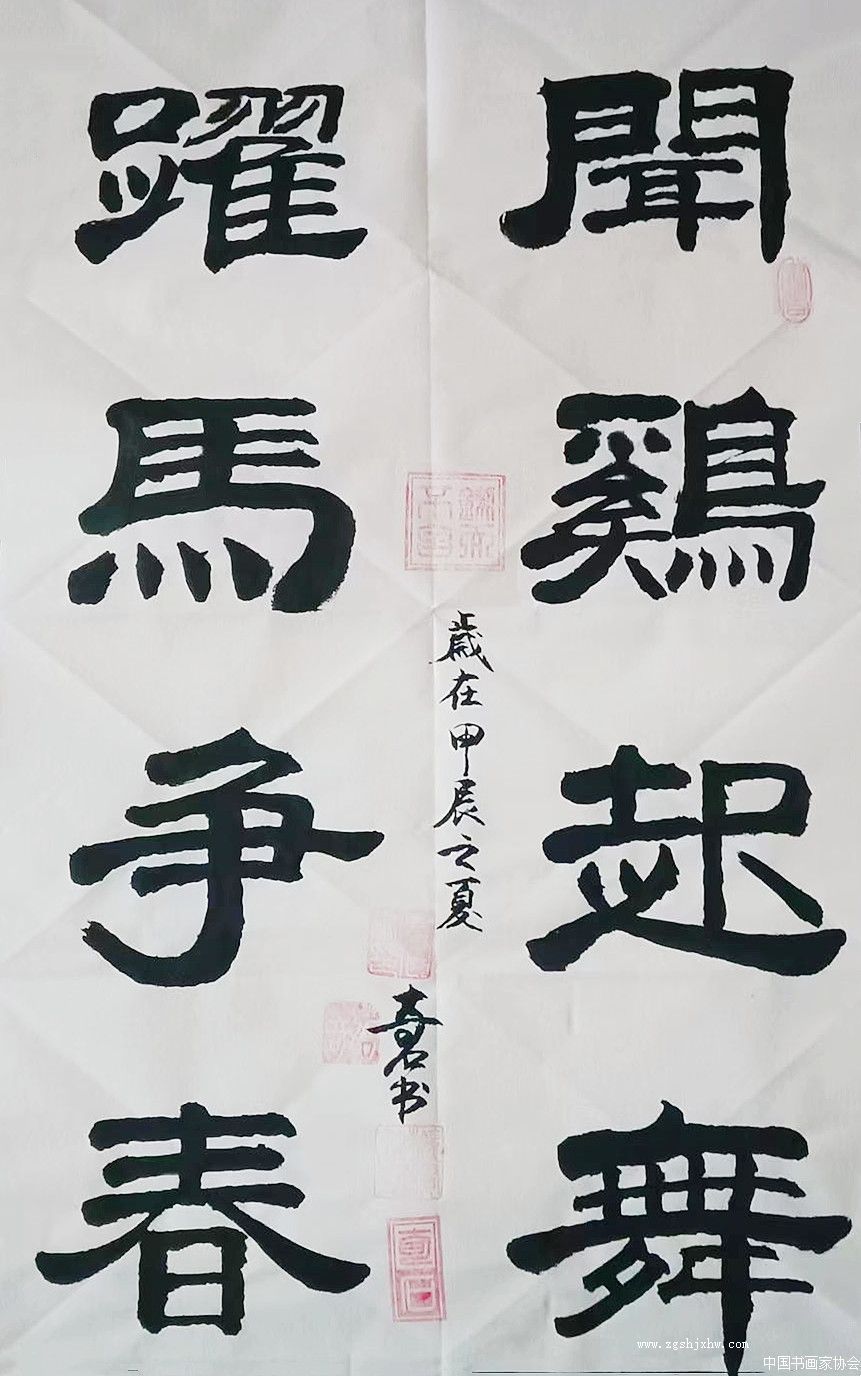 聞鷄起舞
躍馬争春
歳在甲辰之夏
书
www.zgshjxhw.com
中国书画家协会